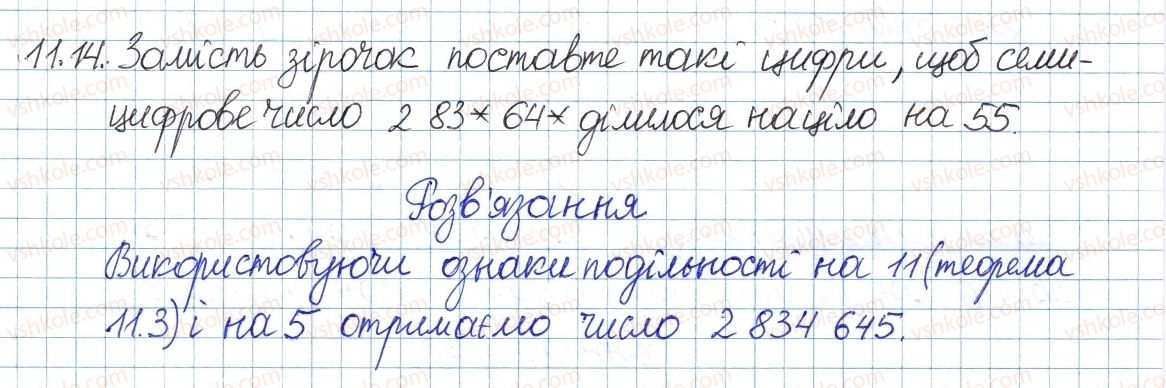 11.14. Замість зірочок поставте такі цифри, щоб семи-
цифрове число 2 83* 64* ділилося націло на 55.
Розв'язання
Використовуючи ознаки подільності на 11 (теорема
11.3) і на 5 отримаємо число 2 834 645.